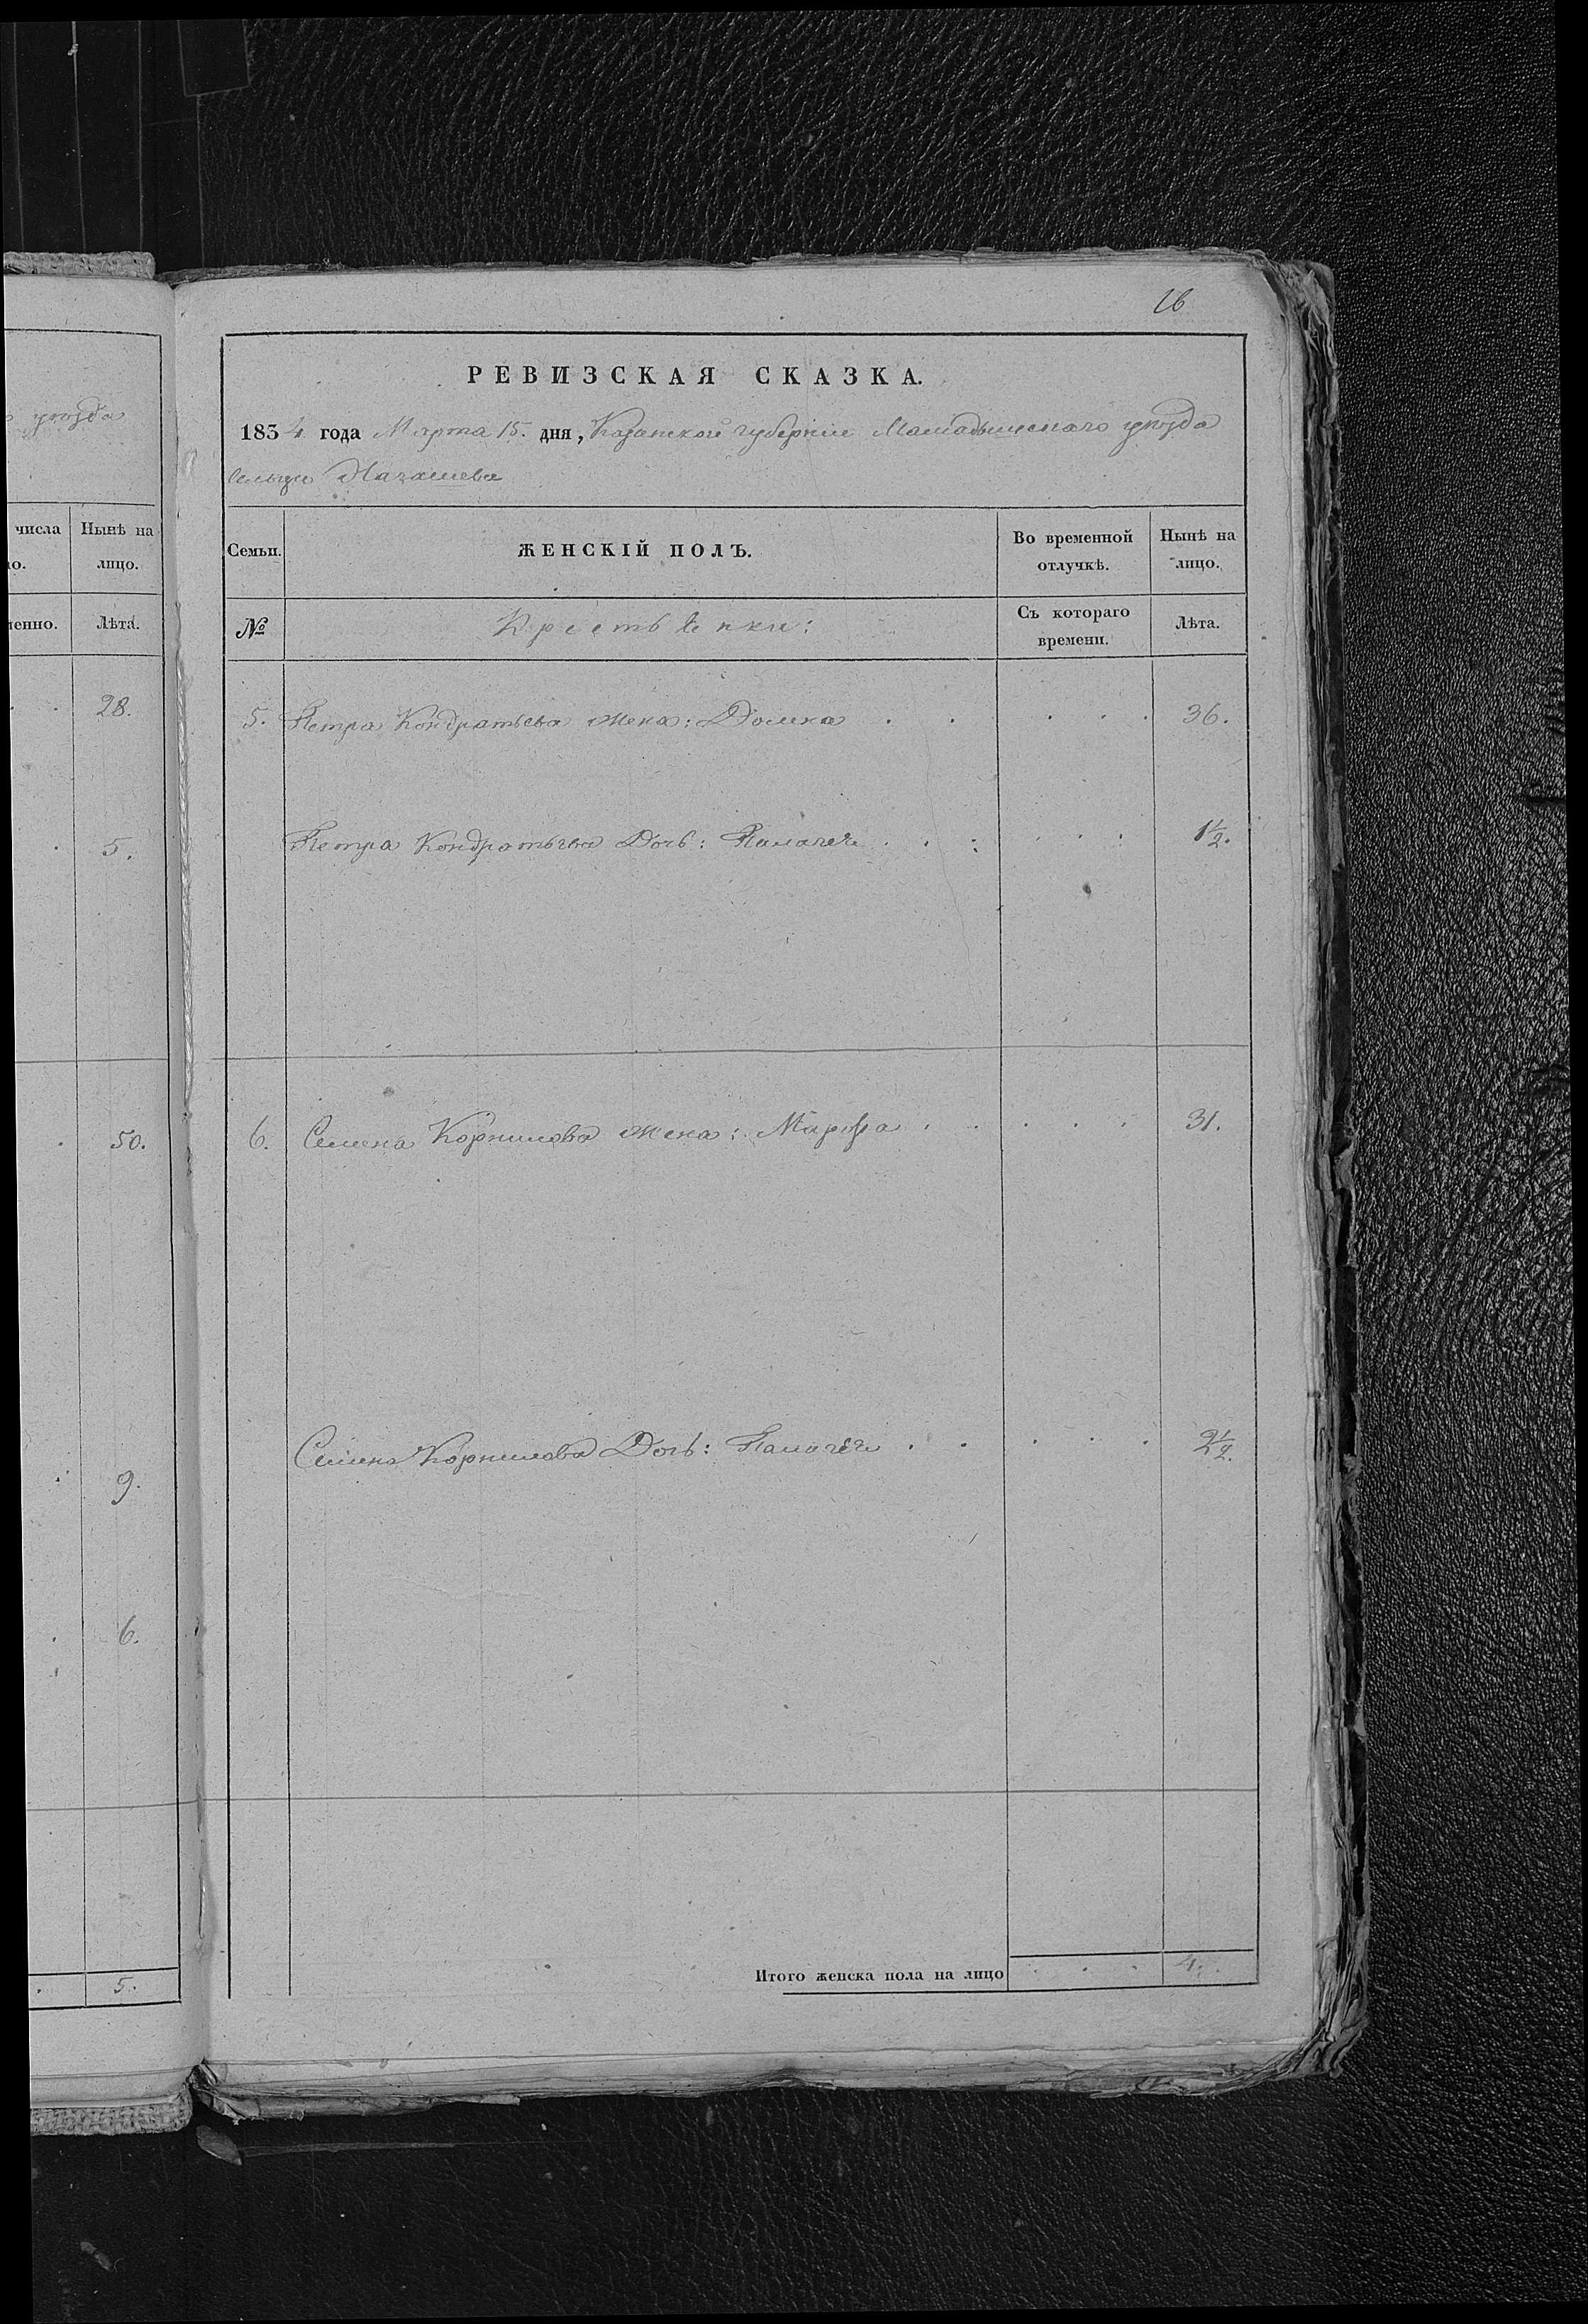 уѣзда
числа
Нынѣ на
лицо.
Лѣта.
28.
5.
50.
9.
6.
5.
16
РЕВИЗСКАЯ СКАЗКА.
1834 года Марта 15. дня, Казанской губерніи Мамадышскаго уѣзда
сельца
Семьи.
ЖЕНСКІЙ ПОЛЪ.
Во временной отлучкѣ.
Нынѣ на лицо.
№
Крестьянки:
Съ котораго времени.
Лѣта.
5. Петра Кондратьева жена: Домна . . . . . 36.
Петра Кондратьева Дочь: Палагея . . . . . 1½.
6. Семена Корнилова жена: Марфа . . . . . 31.
Семена Корнилова Дочь: Палагея . . . . . 2½.
Итого женска пола на лицо . . . 4.